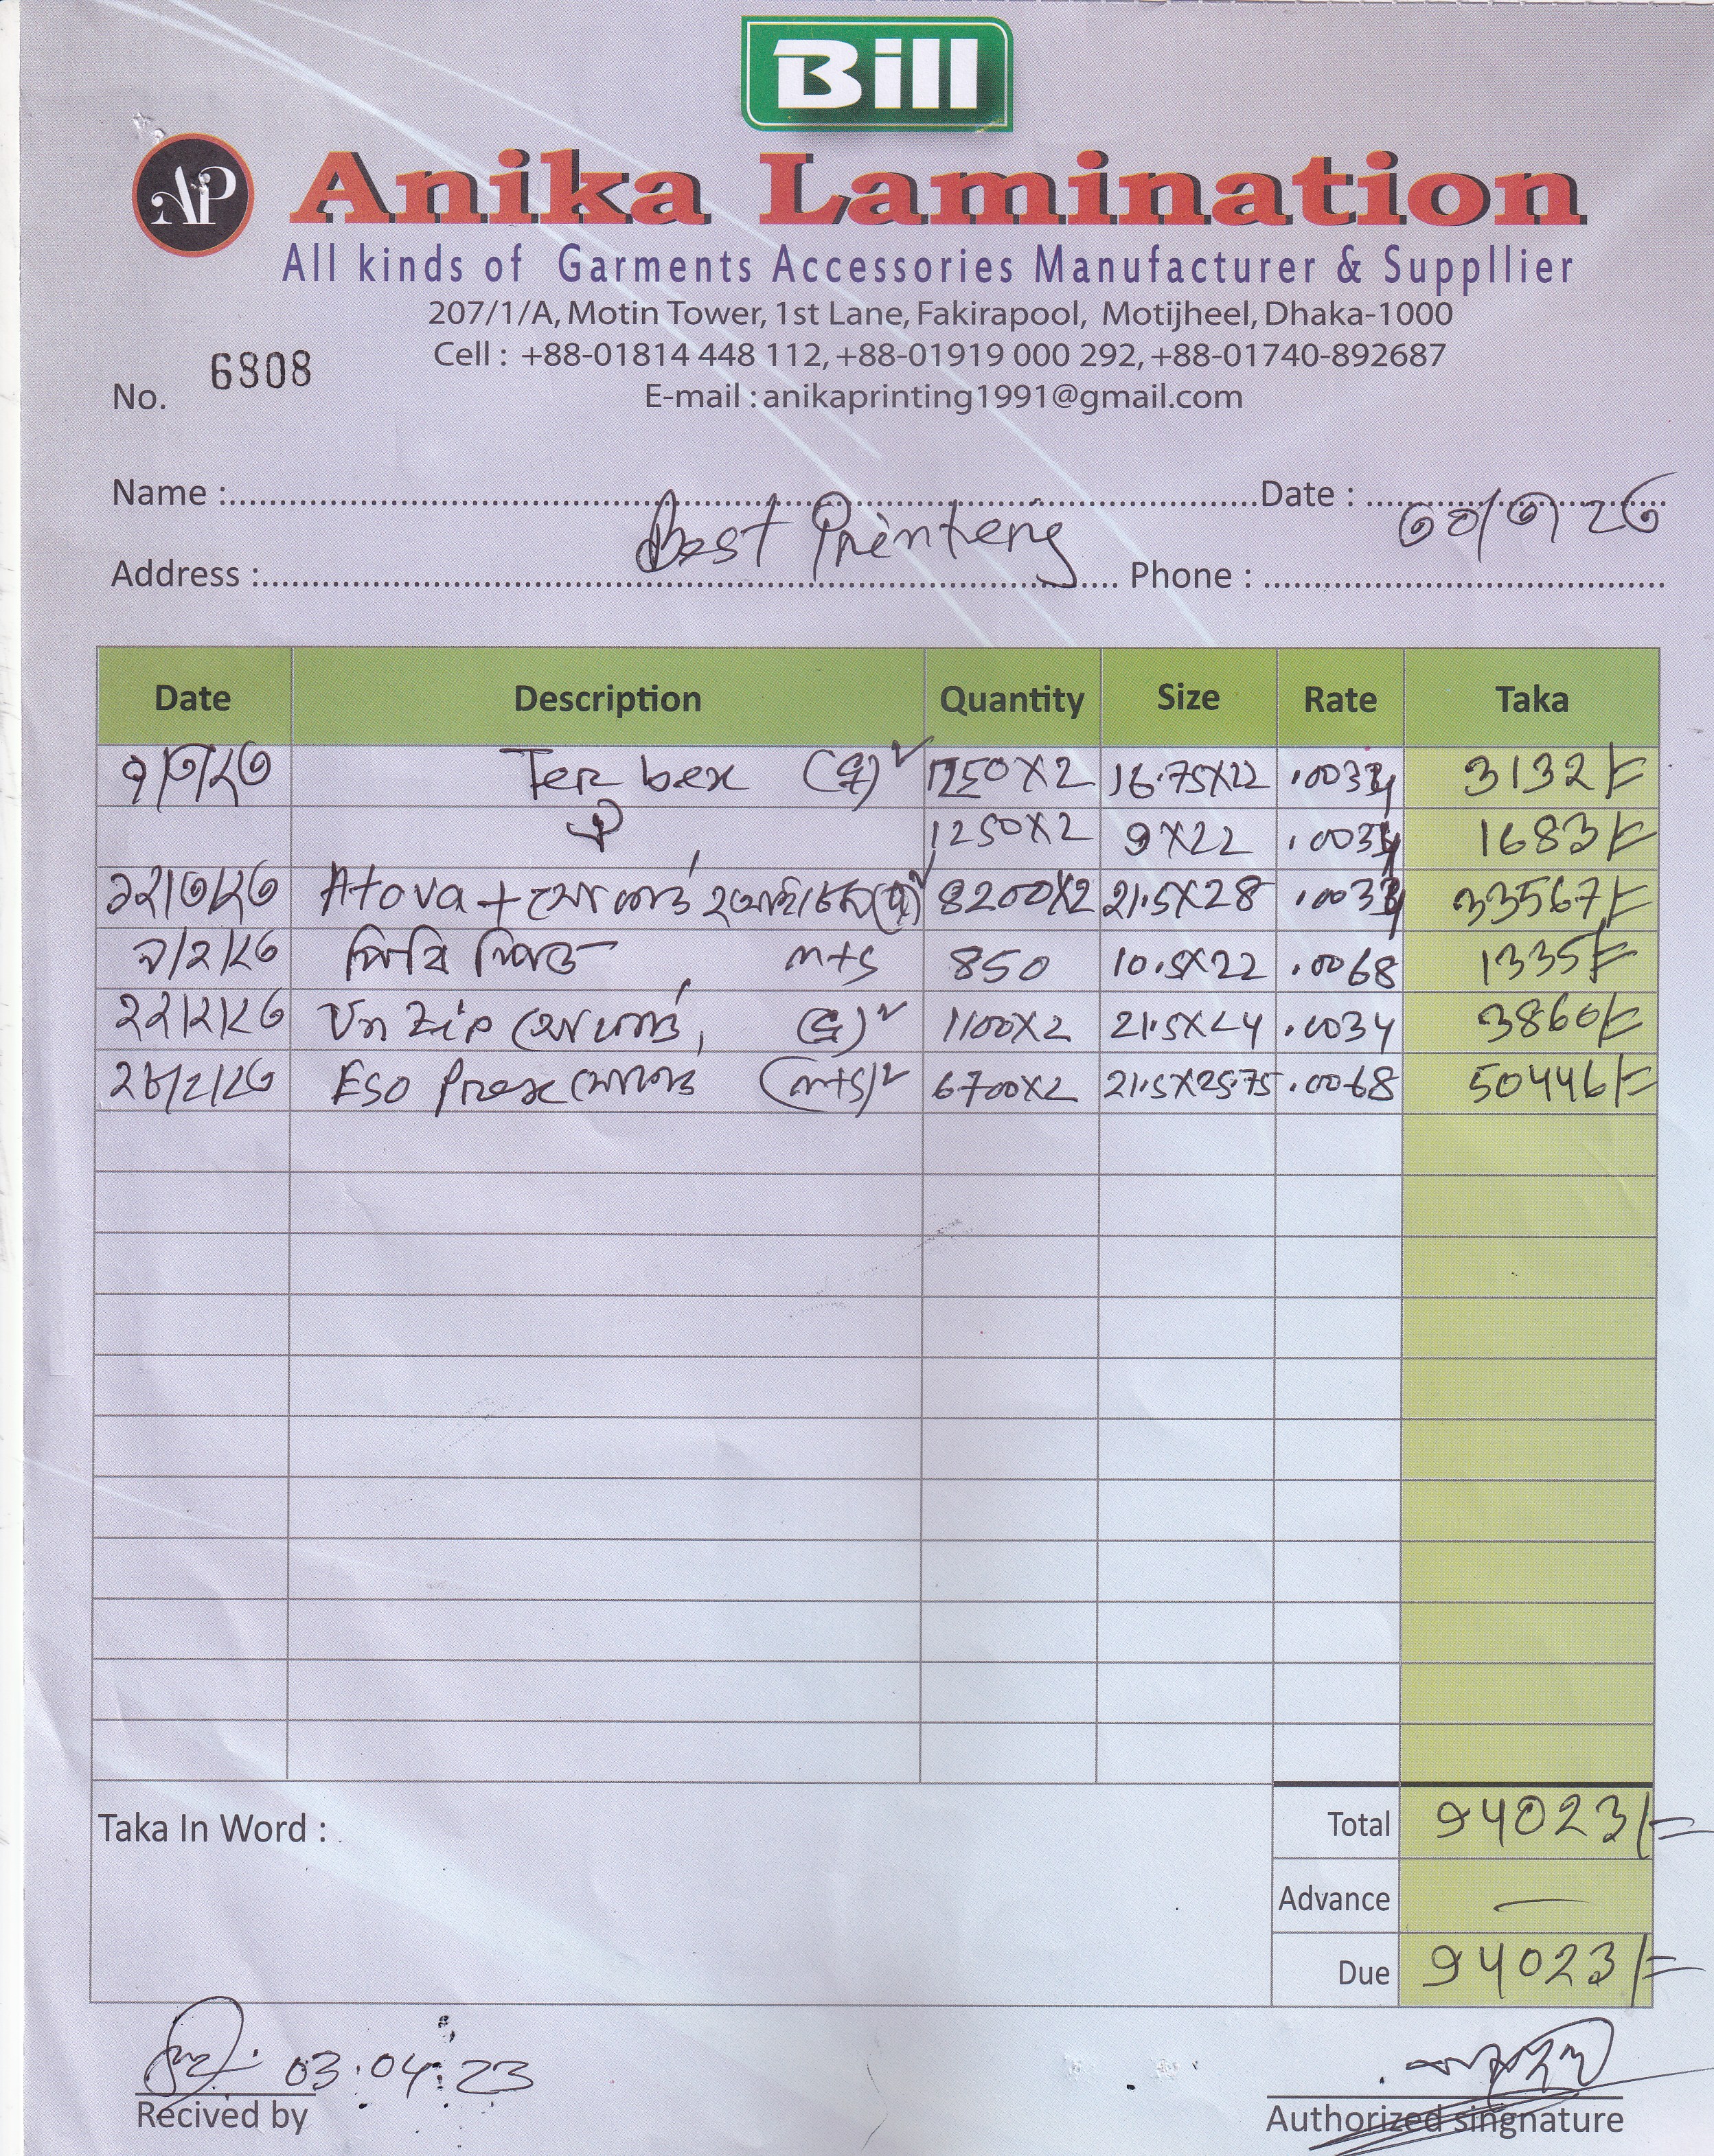 Bill
AP
Anika Lamination
All kinds of Garments Accessories Manufacturer & Suppllier
207/1/A, Motin Tower, 1st Lane, Fakirapool, Motijheel, Dhaka-1000
Cell : +88-01814 448 112, +88-01919 000 292, +88-01740-892687
No. 6808
E-mail : anikaprinting1991@gmail.com
Name : Best Printeng Date : ৩০/৩/২৩
Address : Phone :
Date Description Quantity Size Rate Taka
৭/৩/২৩ Ter bex 1250X2 16.75X22 .0034 3132/=
1250X2 9X22 .0034 1683/=
১২/৩/২৩ Atova + 8200X2 21.5X28 .0034 33567/=
৮/২/২৩ m+s 850 10.5X22 .0068 1335/=
২২/২/২৩ Un Zip 1100X2 21.5X24 .0034 3860/=
২৮/২/২৩ Eso Prex (m+s) 6700X2 21.5X25.75 .0068 50446/=
Taka In Word : Total 94023/=
Advance —
Due 94023/=
03.04.23
Recived by Authorized singnature